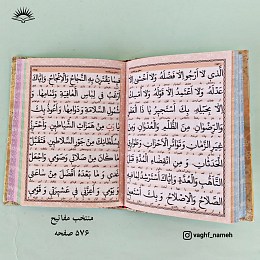 الَّذي لا اَرْجُو اِلَّا فَضْلَهُ وَلا اَخْشى اِلَّا
عَدْلَهُ وَلا اَعْتَمِدُ اِلَّا قَوْلَهُ وَلا اُمْسِكُ
اِلَّا بِحَبْلِهِ بِكَ اَسْتَجيرُ يا ذَا الْعَفْوِ
وَالرِّضْوانِ مِنَ الظُّلْمِ وَالْعُدْوانِ وَمِنْ غِيَرِ
الزَّمانِ وَتَواتُرِ الْاَحْزانِ وَطَوارِقِ
الْحَدَثانِ وَمِنِ انْقِضاءِ الْمُدَّةِ قَبْلَ
التَّاَهُّبِ وَالْعُدَّةِ وَاِيَّاكَ اَسْتَرْشِدُ لِما فيهِ
الصَّلاحُ وَالْاِصْلاحُ وَبِكَ اَسْتَعينُ
فيما يَقْتَرِنُ بِهِ النَّجاحُ وَالْاِنْجاحُ وَاِيَّاكَ
اَرْغَبُ في لِباسِ الْعافِيَةِ وَتَمامِها وَ
شُمُولِ السَّلامَةِ وَدَوامِها وَاَعُوذُ بِكَ
يا رَبِّ مِنْ هَمَزاتِ الشَّياطينِ وَاَحْتَرِزُ
بِسُلْطانِكَ مِنْ جَوْرِ السَّلاطينِ فَتَقَبَّلْ
ما كانَ مِنْ صَلاتي وَصَوْمي وَاجْعَلْ
غَدي وَما بَعْدَهُ اَفْضَلَ مِنْ ساعَتي
وَيَوْمي وَاَعِزَّني في عَشيرَتي وَقَوْمي
منتخب مفاتیح
۵۷۶ صفحه
vaghf_nameh